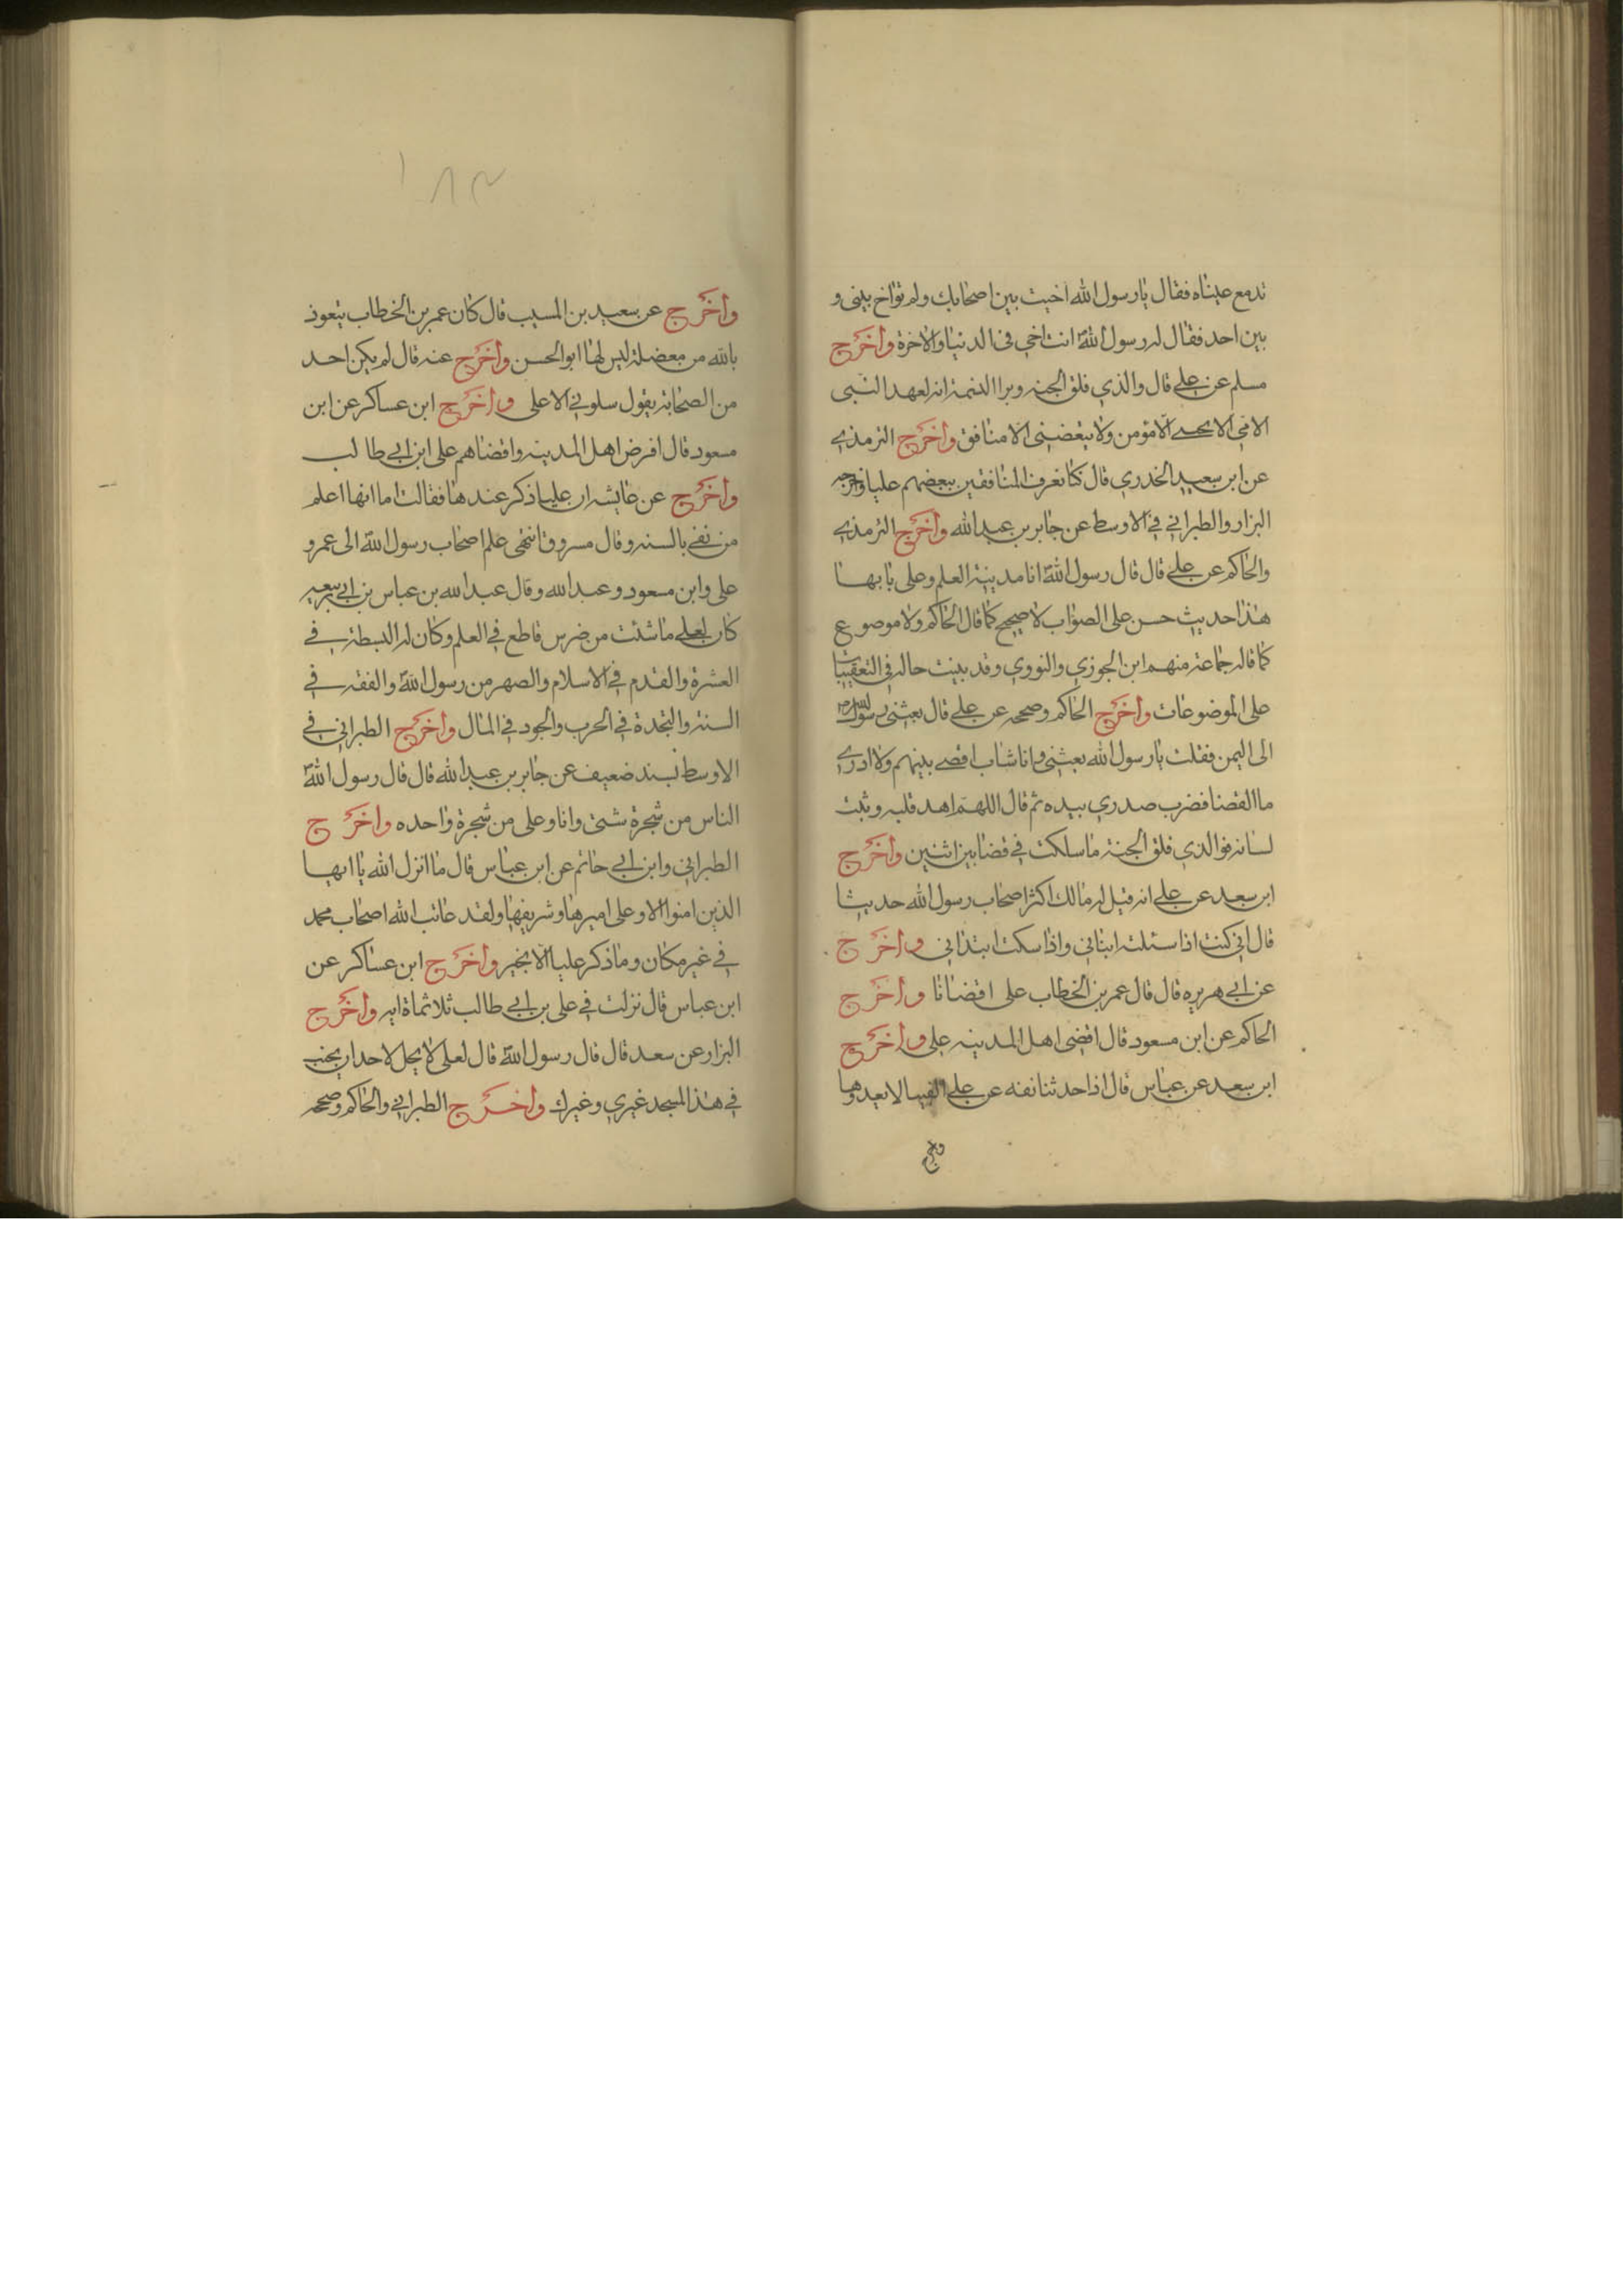 تدمع عيناه فقال يا رسول الله اخيت بين اصحابك ولم تواخ بيني و
بين احد فقال له رسول الله انت اخي في الدنيا والاخرة وأخرج
مسلم عن علي قال والذي فلق الجنه وبرا النسمة انه لعهد النبي
الامي الا يحبني الا مؤمن ولا يبغضني الا منافق وأخرج الترمذي
عن ابن سعيد الخدري قال كنا نعرف المنافقين ببغضهم عليا واخرجه
البزار والطبراني في الاوسط عن جابر بن عبد الله وأخرج الترمذي
والحاكم عن علي قال قال رسول الله انا مدينة العلم وعلى بابها
هذا حديث حسن على الصواب لا صحيح كما قال الحاكم ولا موضوع
كما قاله جماعة منهم ابن الجوزي والنووي وقد بينت حاله في التعقيبات
على الموضوعات وأخرج الحاكم وصححه عن علي قال بعثني رسول الله
الى اليمن فقلت يا رسول الله بعثني وانا شاب اقضي بينهم ولا ادري
ما القضا فضرب صدري بيده ثم قال اللهم اهد قلبه وثبت
لسانه فوالذي فلق الجنة ما سلكت في قضا بين اثنين وأخرج
ابن سعد عن علي انه قيل له مالك اكثر اصحاب رسول الله حديثا
قال اني كنت اذا سئلته ابناني واذا سكت ابتداني وأخرج
عن ابي هريره قال قال عمر بن الخطاب علي اقضانا وأخرج
الحاكم عن ابن مسعود قال اقضى اهل المدينه علي وأخرج
ابن سعد عن عباس قال اذا حدثنا نفه عن علي الفيبا لا نعيدوها
واخرج
١٨٣
وأخرج عن سعيد بن المسيب قال كان عمر بن الخطاب يتعوذ
بالله من معضلة ليس لها ابو الحسن وأخرج عنه قال لم يكن احد
من الصحابة يقول سلوني الا على وأخرج ابن عساكر عن ابن
مسعود قال افرض اهل المدينه واقضاهم على ابن ابي طالب
وأخرج عن عايشه ان عليا ذكر عندها فقالت اما انها اعلم
من نفى بالسنه وقال مسروق انتهى علم اصحاب رسول الله الى عمر و
على وابن مسعود وعبد الله وقال عبد الله بن عباس بن ابي ربيعه
كان لعلي ما شئت من ضرس قاطع في العلم وكان له البسطة في
العشرة والقدم في الاسلام والصهر من رسول الله والفقه في
السنه والنجدة في الحرب والجود في المال وأخرج الطبراني في
الاوسط بسند ضعيف عن جابر بن عبد الله قال قال رسول الله
الناس من شجرة شتى وانا وعلى من شجرة واحده وأخرج
الطبراني وابن ابي حاتم عن ابن عباس قال ما انزل الله يا ايها
الذين امنوا الا وعلى اميرها وشريفها ولقد عاتب الله اصحاب محمد
في غير مكان وما ذكر عليا الا بخير وأخرج ابن عساكر عن
ابن عباس قال نزلت في على بن ابي طالب ثلاثماة ايه وأخرج
البزار عن سعد قال قال رسول الله قال لعلى لا يحل لاحد ان يجنب
في هذا المسجد غيري وغيرك وأخرج الطبراني والحاكم وصححه